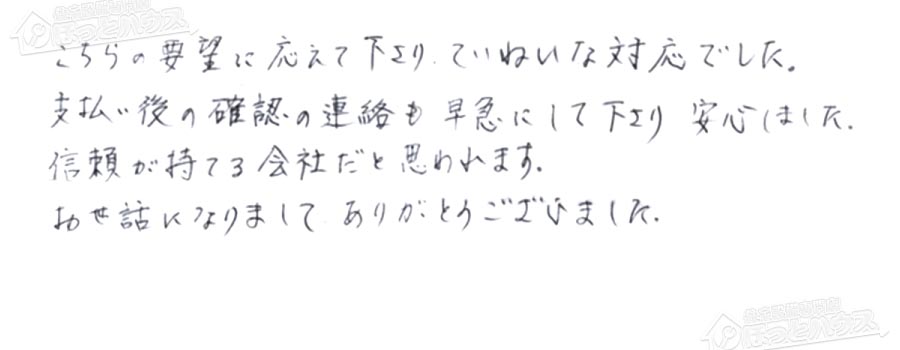 こちらの要望に応えて下さり、ていねいな対応でした。
支払い後の確認の連絡も早急にして下さり 安心しました。
信頼が持てる会社だと思われます。
お世話になりまして、ありがとうございました。
ほっとハウス
ほっとハウス